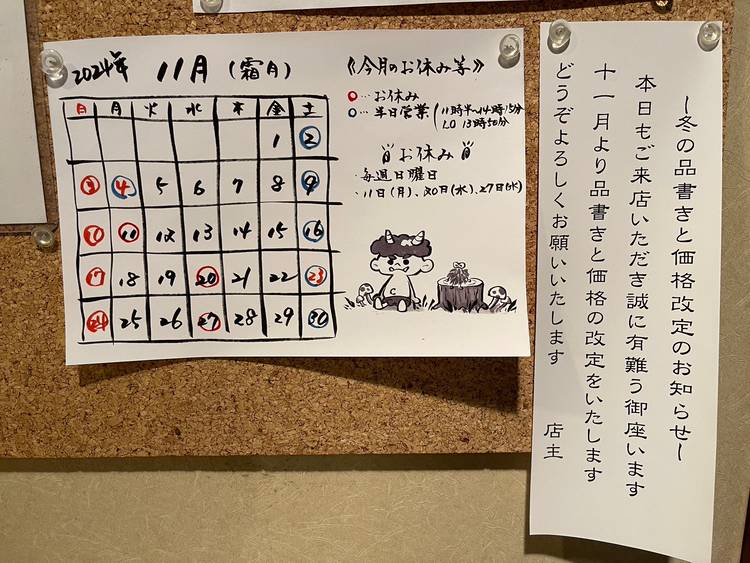 2024年 11月（霜月）
日 月 火 水 木 金 土
1 2
3 4 5 6 7 8 9
10 11 12 13 14 15 16
17 18 19 20 21 22 23
24 25 26 27 28 29 30
《今月のお休み等》
○… お休み
○… 半日営業（11時半〜14時15分
LO 13時50分
お休み
・毎週日曜日
・11日(月)、20日(水)、27日(水)
〜冬の品書きと価格改定のお知らせ〜
本日もご来店いただき誠に有難う御座います
十一月より品書きと価格の改定をいたします
どうぞよろしくお願いいたします 店主